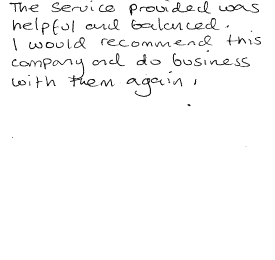 The service provided was
helpful and balanced.
I would recommend this
company and do business
with them again.